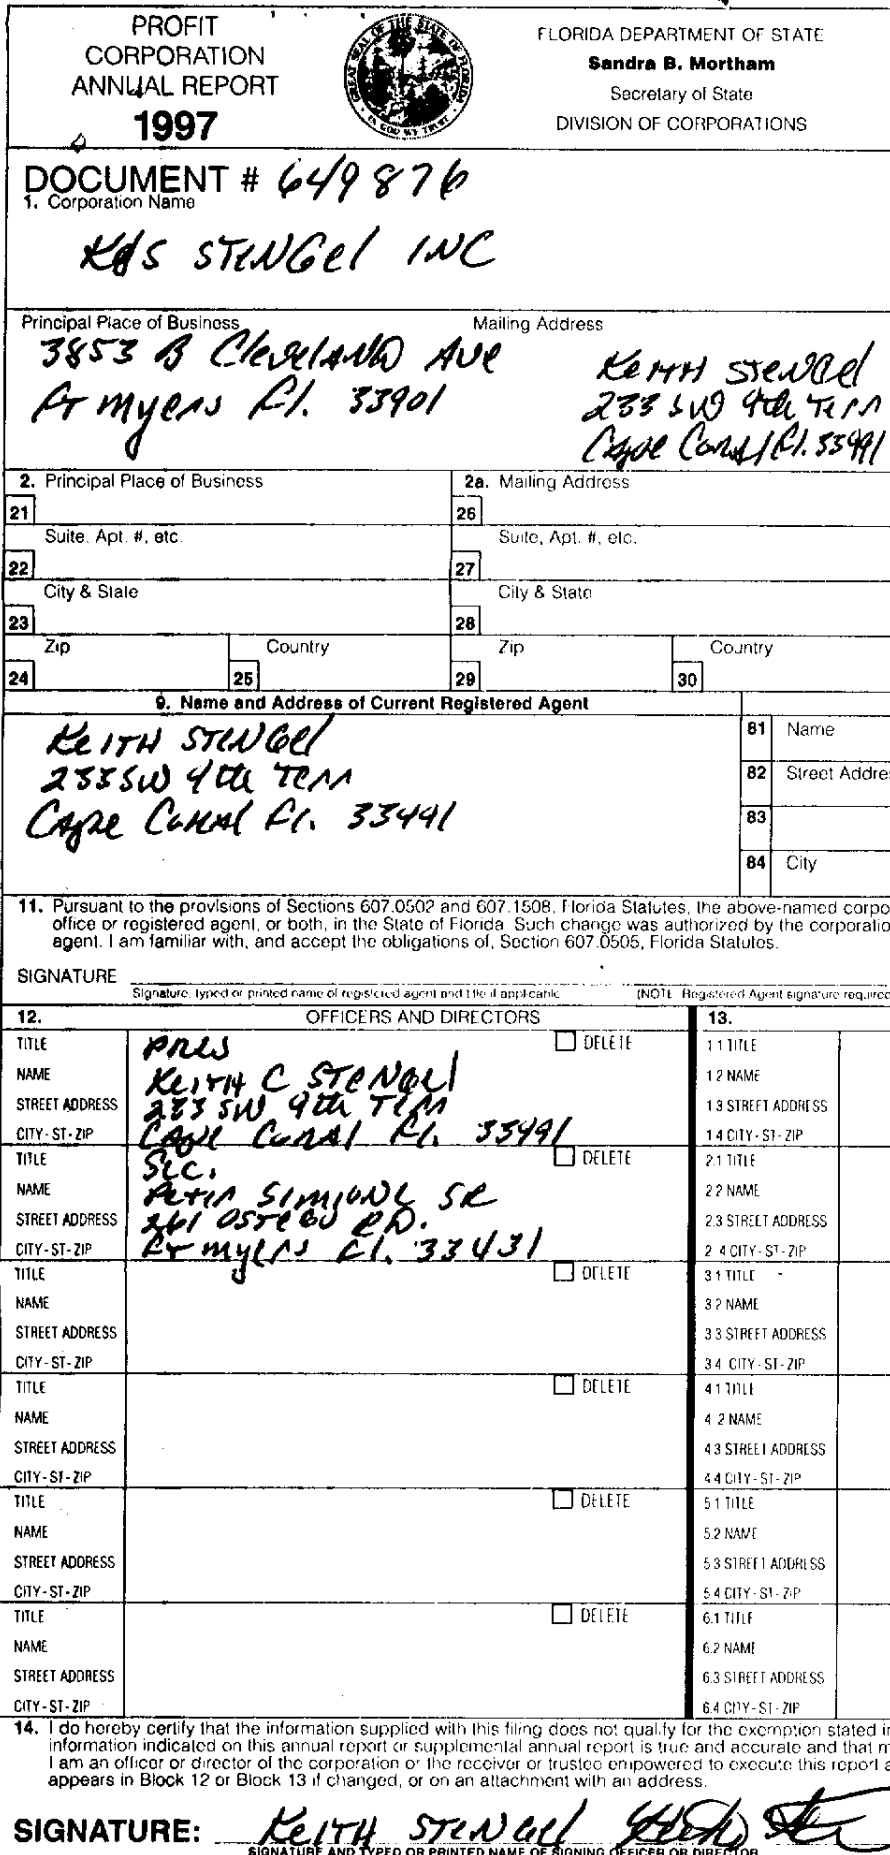 PROFIT
CORPORATION
ANNUAL REPORT
1997
GREAT SEAL OF THE STATE OF FLORIDA
IN GOD WE TRUST
FLORIDA DEPARTMENT OF STATE
Sandra B. Mortham
Secretary of State
DIVISION OF CORPORATIONS
DOCUMENT # 649876
1. Corporation Name
STENGEL INC
Principal Place of Business
3853 B Cleveland Ave
Ft Myers Fl. 33901
Mailing Address
Keith Stengel
233 SW 9th Terr
Cape Coral Fl. 33991
2. Principal Place of Business
2a. Mailing Address
21
26
Suite, Apt. #, etc.
Suite, Apt. #, etc.
22
27
City & State
City & State
23
28
Zip
Country
Zip
Country
24
25
29
30
9. Name and Address of Current Registered Agent
Keith Stengel
233 SW 9th Terr
Cape Coral Fl. 33991
81 Name
82 Street Addre
83
84 City
11. Pursuant to the provisions of Sections 607.0502 and 607.1508, Florida Statutes, the above-named corpo
office or registered agent, or both, in the State of Florida. Such change was authorized by the corporatio
agent. I am familiar with, and accept the obligations of, Section 607.0505, Florida Statutes.
SIGNATURE
Signature, typed or printed name of registered agent and title if applicable
(NOTE Registered Agent signature required
12.
OFFICERS AND DIRECTORS
13.
TITLE Pres DELETE
NAME Keith C Stengel
STREET ADDRESS 233 SW 9th Terr
CITY-ST-ZIP Cape Coral Fl. 33991
1 1 TITLE
1 2 NAME
1 3 STREET ADDRESS
1 4 CITY-ST-ZIP
TITLE Sec. DELETE
NAME Peter Simione SR
STREET ADDRESS 261 RD.
CITY-ST-ZIP Ft Myers Fl. 33931
2.1 TITLE
2 2 NAME
2.3 STREET ADDRESS
2 4 CITY-ST-ZIP
TITLE DELETE
NAME
STREET ADDRESS
CITY-ST-ZIP
3 1 TITLE
3 2 NAME
3 3 STREET ADDRESS
3 4 CITY-ST-ZIP
TITLE DELETE
NAME
STREET ADDRESS
CITY-ST-ZIP
4 1 TITLE
4 2 NAME
4 3 STREET ADDRESS
4 4 CITY-ST-ZIP
TITLE DELETE
NAME
STREET ADDRESS
CITY-ST-ZIP
5 1 TITLE
5.2 NAME
5 3 STREET ADDRESS
5 4 CITY-ST-ZIP
TITLE DELETE
NAME
STREET ADDRESS
CITY-ST-ZIP
6.1 TITLE
6.2 NAME
6.3 STREET ADDRESS
6.4 CITY-ST-ZIP
14. I do hereby certify that the information supplied with this filing does not qualify for the exemption stated in
information indicated on this annual report or supplemental annual report is true and accurate and that m
I am an officer or director of the corporation or the receiver or trustee empowered to execute this report a
appears in Block 12 or Block 13 if changed, or on an attachment with an address.
SIGNATURE: Keith Stengel
SIGNATURE AND TYPED OR PRINTED NAME OF SIGNING OFFICER OR DIRECTOR